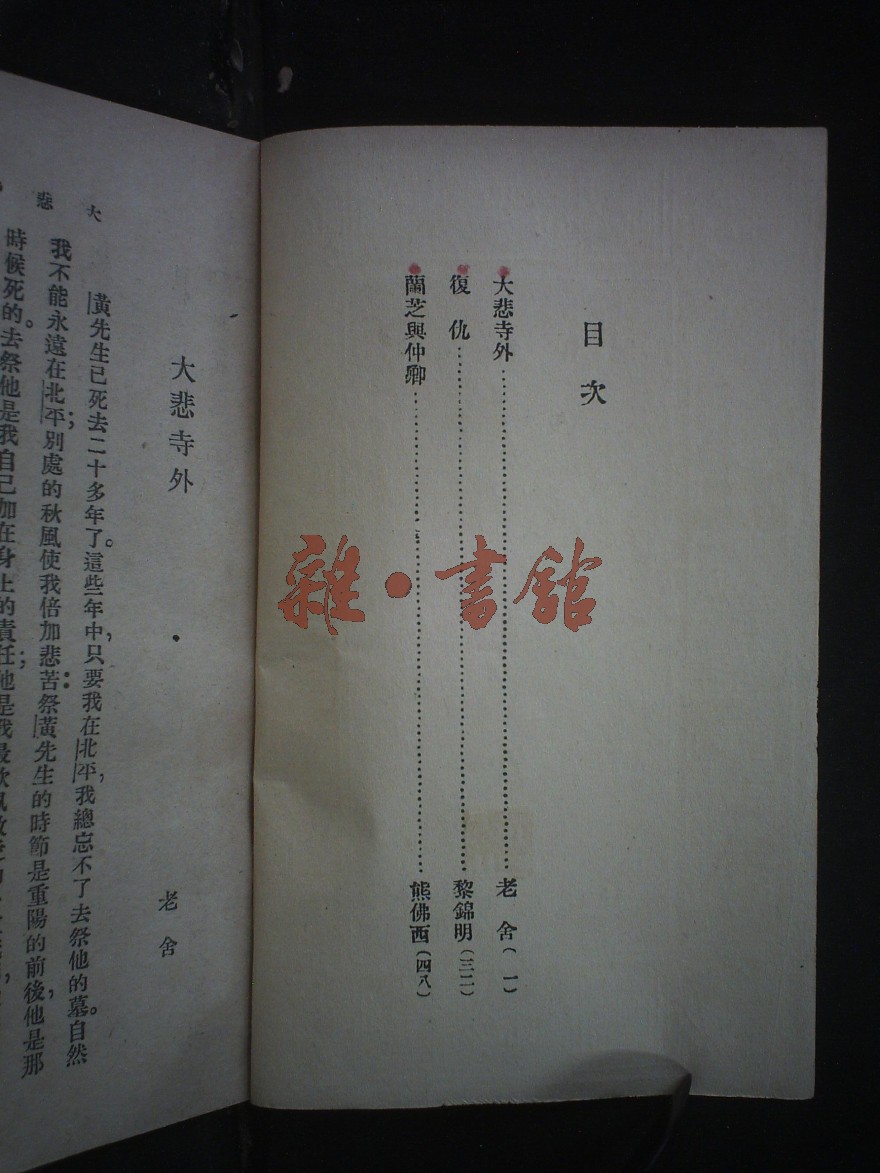 目次
大悲寺外……老舍(一)
復仇……黎錦明(三二)
蘭芝與仲卿……熊佛西(四八)
雜·書館
大悲
大悲寺外
老舍
黃先生已死去二十多年了。這些年中,只要我在北平,我總忘不了去祭他的墓。自然
我不能永遠在北平;別處的秋風使我倍加悲苦:祭黃先生的時節是重陽的前後,他是那
時候死的。去祭他是我自己加在身上的責任;他是我最欽